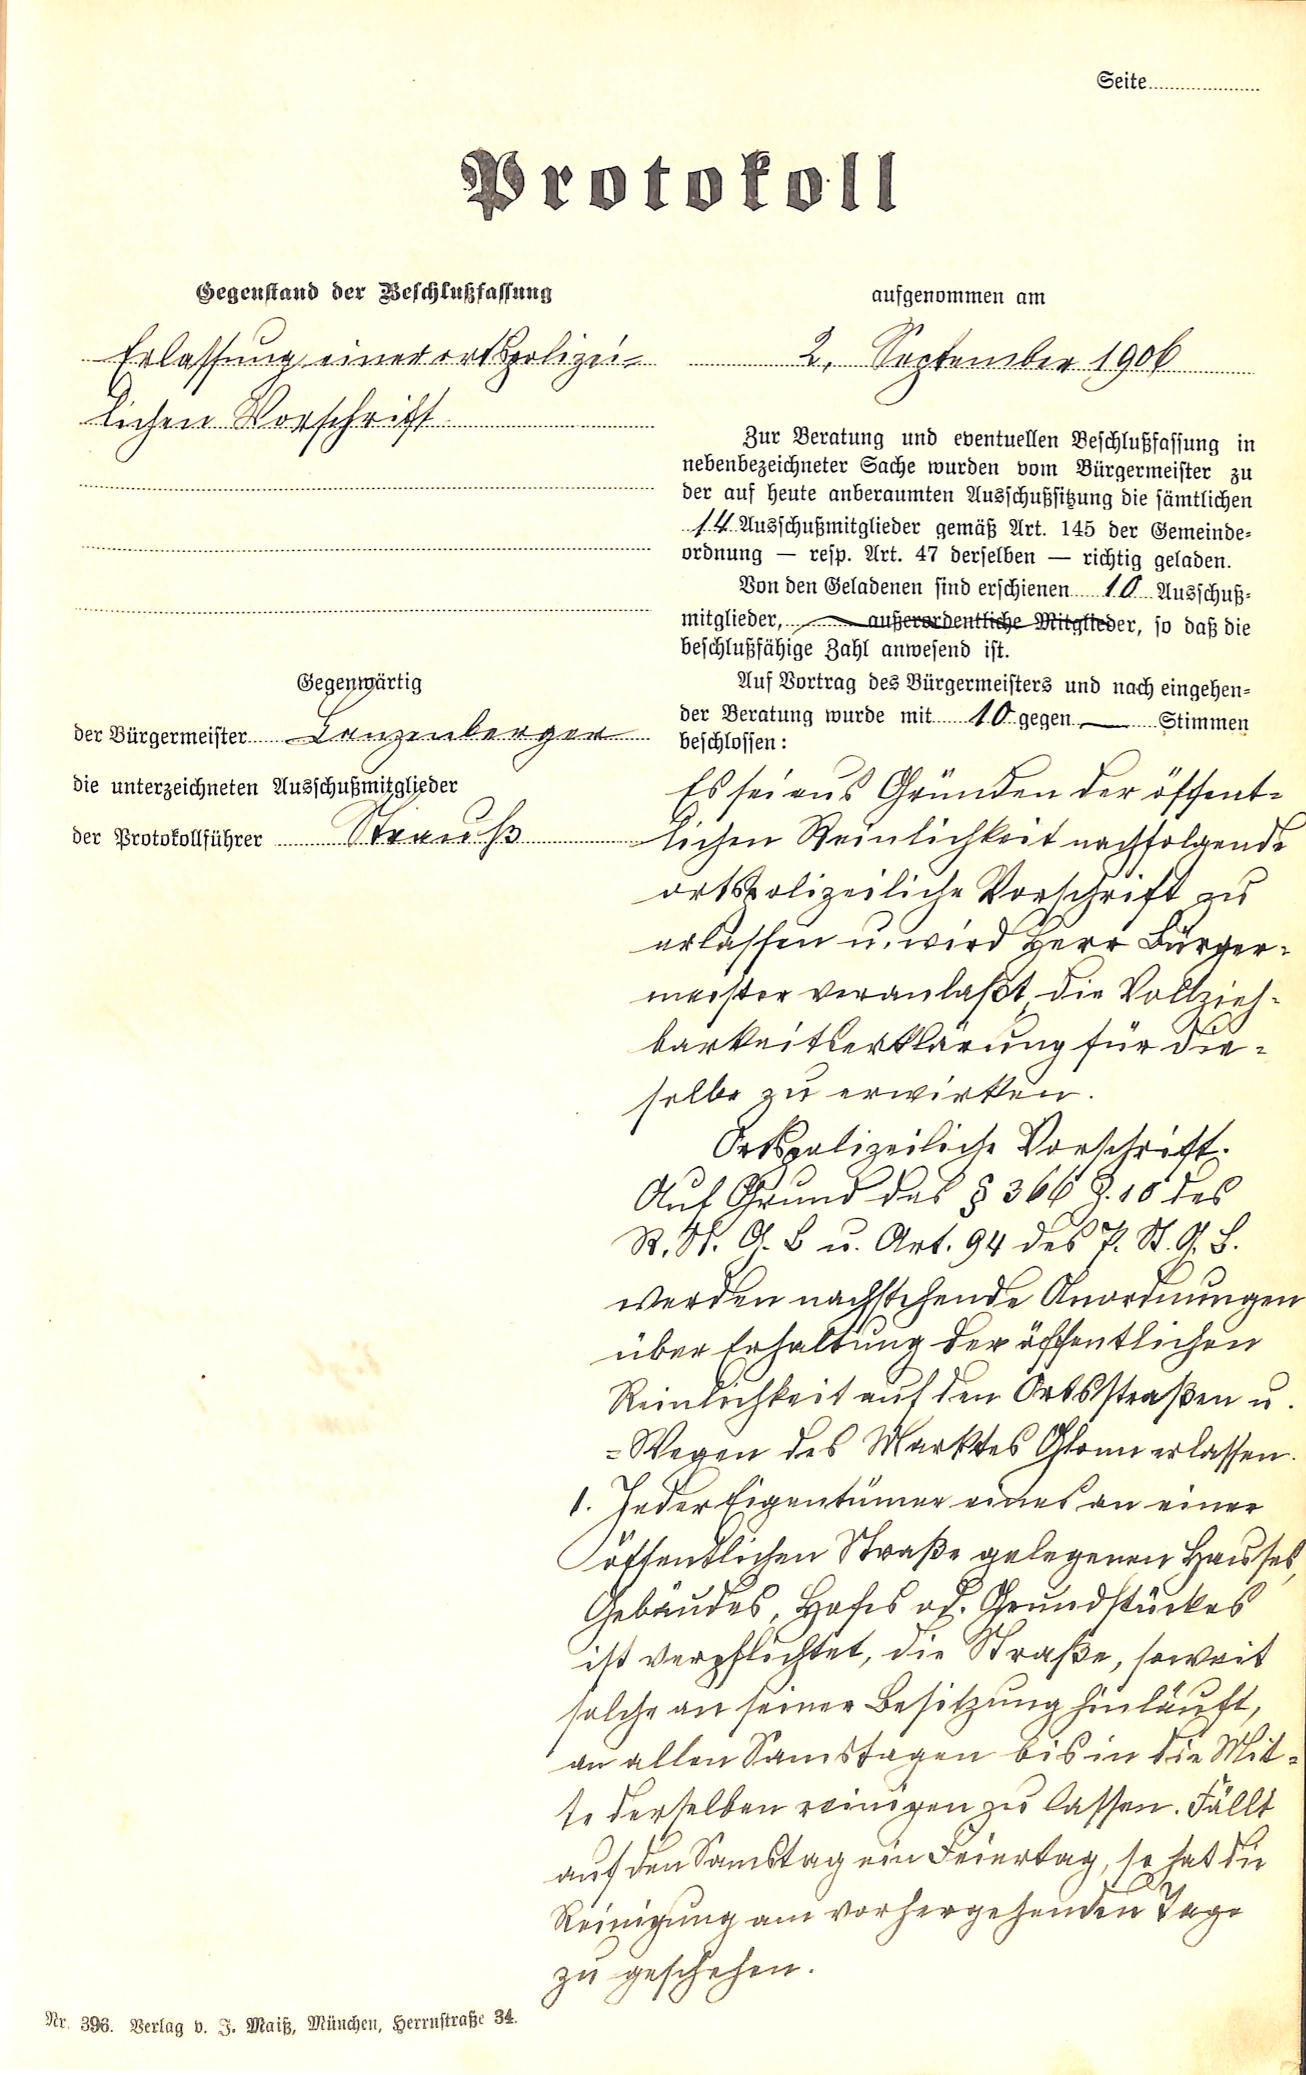 Seite
Protokoll
Gegenstand der Beschlußfassung
Erlassung einer ortspolizei-
lichen Vorschrift
Gegenwärtig
der Bürgermeister Lanzenberger
die unterzeichneten Ausschußmitglieder
der Protokollführer Strauß
aufgenommen am
2. September 1906
Zur Beratung und eventuellen Beschlußfassung in
nebenbezeichneter Sache wurden vom Bürgermeister zu
der auf heute anberaumten Ausschußsitzung die sämtlichen
14 Ausschußmitglieder gemäß Art. 145 der Gemeinde-
ordnung — resp. Art. 47 derselben — richtig geladen.
Von den Geladenen sind erschienen 10 Ausschuß-
mitglieder, außerordentliche Mitglieder, so daß die
beschlußfähige Zahl anwesend ist.
Auf Vortrag des Bürgermeisters und nach eingehen-
der Beratung wurde mit 10 gegen — Stimmen
beschlossen:
Es sei aus Gründen der öffent-
lichen Reinlichkeit nachfolgende
ortspolizeiliche Vorschrift zu
erlassen u. wird Herr Bürger-
meister veranlaßt, die Vollzieh-
barkeitserklärung für die-
selbe zu erwirken.
Ortspolizeiliche Vorschrift.
Auf Grund des § 366 Z. 10 des
R. St. G. B u. Art. 94 des P. St. G. B.
werden nachstehende Anordnungen
über Erhaltung der öffentlichen
Reinlichkeit auf den Ortsstraßen u.
=Wegen des Marktes Glonn erlassen.
1. Jeder Eigentümer eines an einer
öffentlichen Straße gelegenen Hauses,
Gebäudes, Hofes od. Grundstückes
ist verpflichtet, die Straße, soweit
solche an seiner Besitzung hinläuft,
an allen Samstagen bis in die Mit-
te derselben reinigen zu lassen. Fällt
auf den Samstag ein Feiertag, so hat die
Reinigung am vorhergehenden Tage
zu geschehen.
Nr. 396. Verlag v. J. Maiß, München, Herrnstraße 34.